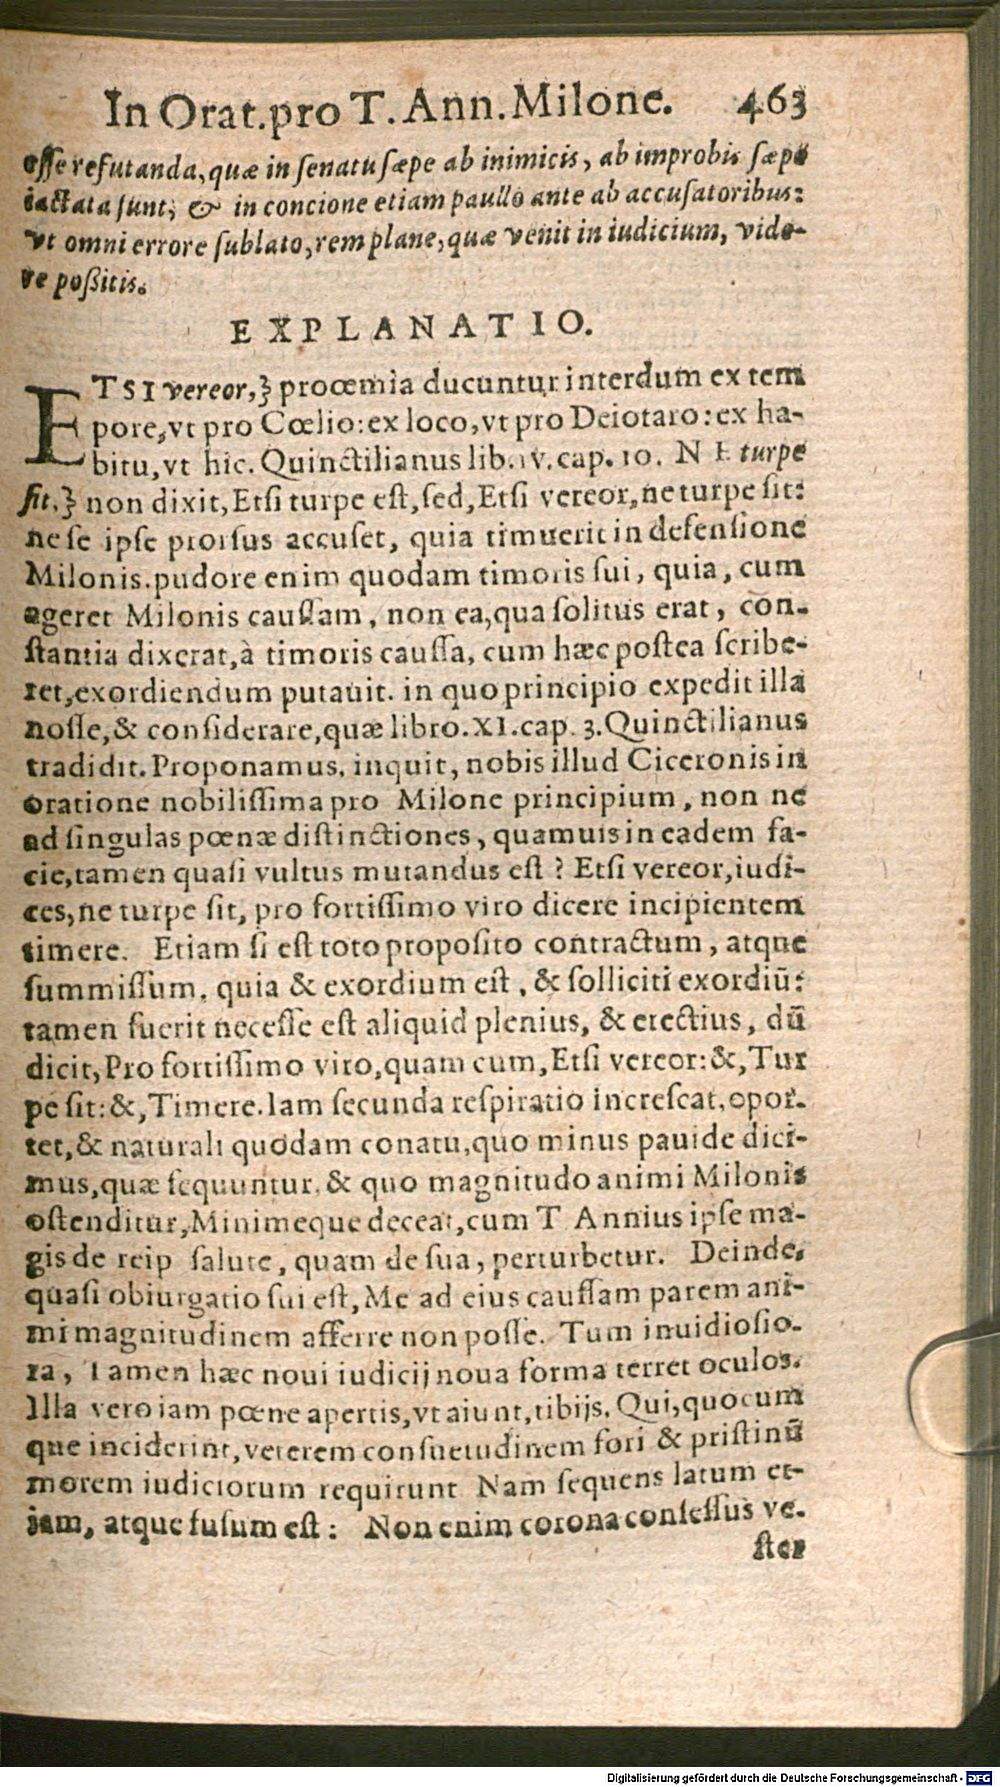 In Orat. pro T. Ann. Milone. 463
esse refutanda, quæ in senatu sæpe ab inimicis, ab improbis sæpe
iactata sunt, & in concione etiam paullo ante ab accusatoribus:
vt omni errore sublato, rem plane, quæ venit in iudicium, vide-
re poßitis.
EXPLANATIO.
ETSI vereor,] procemia ducuntur interdum ex tem
pore, vt pro Cœlio: ex loco, vt pro Deiotaro: ex ha-
bitu, vt hic. Quinctilianus lib. iv. cap. 10. NE turpe
sit,] non dixit, Etsi turpe est, sed, Etsi vereor, ne turpe sit:
ne se ipse prorsus accuset, quia timuerit in defensione
Milonis. pudore enim quodam timoris sui, quia, cum
ageret Milonis caussam, non ea, qua solitus erat, con-
stantia dixerat, à timoris caussa, cum hæc postea scribe-
ret, exordiendum putauit. in quo principio expedit illa
nosse, & considerare, quæ libro. XI. cap. 3. Quinctilianus
tradidit. Proponamus, inquit, nobis illud Ciceronis in
oratione nobilissima pro Milone principium, non ne
ad singulas pœnæ distinctiones, quamuis in eadem fa-
cie, tamen quasi vultus mutandus est? Etsi vereor, iudi-
ces, ne turpe sit, pro fortissimo viro dicere incipientem
timere. Etiam si est toto proposito contractum, atque
summissum, quia & exordium est, & solliciti exordiũ:
tamen fuerit necesse est aliquid plenius, & erectius, dũ
dicit, Pro fortissimo viro, quam cum, Etsi vereor: &, Tur
pe sit: &, Timere. Iam secunda respiratio increscat, opor-
tet, & naturali quodam conatu, quo minus pauide dici-
mus, quæ sequuntur, & quo magnitudo animi Milonis
ostenditur, Minimeque deceat, cum T Annius ipse ma-
gis de reip salute, quam de sua, perturbetur. Deinde,
quasi obiurgatio sui est, Me ad eius caussam parem ani-
mi magnitudinem afferre non posse. Tum inuidiosio-
ra, Tamen hæc noui iudicij noua forma terret oculos.
Illa vero iam pœne apertis, vt aiunt, tibijs. Qui, quocum
que inciderint, veterem consuetudinem fori & pristinũ
morem iudiciorum requirunt Nam sequens latum et-
iam, atque fusum est: Non enim corona consessus ve-
ster
Digitalisierung gefördert durch die Deutsche Forschungsgemeinschaft - DFG